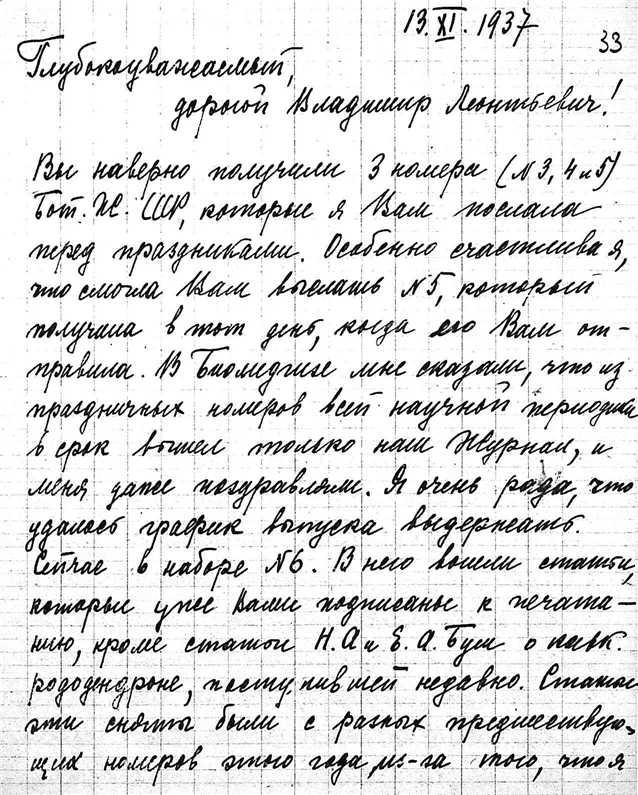 13.XI.1937
33
Глубокоуважаемый,
дорогой Владимир Леонтьевич!
Вы наверно получили 3 номера (N 3, 4 и 5)
Бот. Ж. СССР, которые я Вам послала
перед праздниками. Особенно счастлива я,
что смогла Вам выслать N 5, который
получила в тот день, когда его Вам от-
правила. В Биомедгизе мне сказали, что из
праздничных номеров всей научной периодики
в срок вышел только наш Журнал, и
меня даже поздравляли. Я очень рада, что
удалось график выпуска выдержать.
Сейчас в наборе N 6. В него вошли статьи,
которые уже Вами подписаны к печата-
нию, кроме статьи Н.А и Е.А. Буш о кавк.
рододендроне, поступившей недавно. Статьи
эти сняты были с разных предшествую-
щих номеров этого года, из-за того, что я